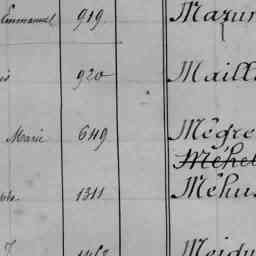 Emmanuel 919 Mazur
920 Maill
Marie 649 Mégre
Méhe
1311 Méhu